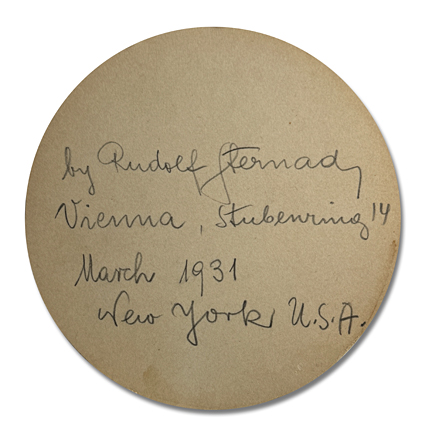 by Rudolf Sternad,
Vienna, Stubenring 14
March 1931
New York U.S.A.